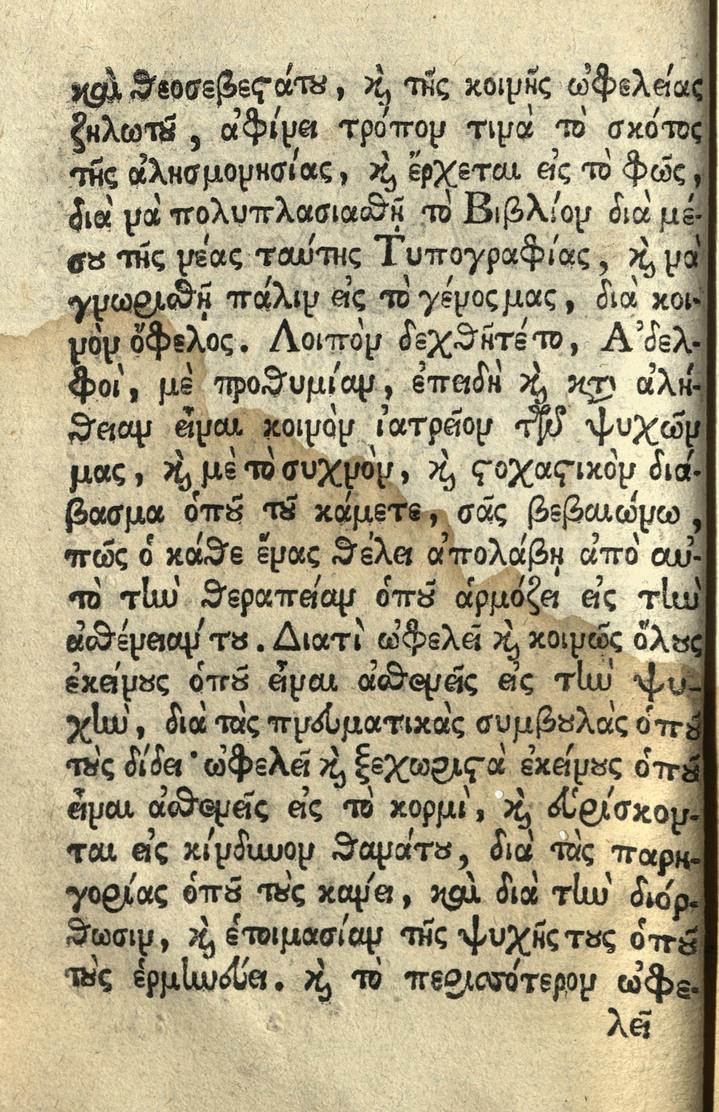 καὶ θεοσεβεςάτȣ, ϗ τῆς κοινῆς ὠφελείας
ζηλωτȣ͂, ἀφίνει τρόπον τινὰ τὸ σκότος
τῆς ἀλησμονησίας, ϗ ἔρχεται εἰς τὸ φῶς,
διὰ νὰ πολυπλασιασθῇ τὸ Βιβλίον διὰ μέ-
σȣ τῆς νέας ταύτης Τυπογραφίας, ϗ νὰ
γνωρισθῇ πάλιν εἰς τὸ γένος μας, διὰ κοι-
νὸν ὄφελος. Λοιπὸν δεχθῆτέ το, Α᾿δελ-
φοὶ, μὲ προθυμίαν, ἐπειδὴ ϗ κτ̀ ἀλή-
θειαν εἶναι κοινὸν ἰατρεῖον τῶν ψυχῶν
μας, ϗ μὲ τὸ συχνὸν, ϗ ςοχαςικὸν διά-
βασμα ὁπȣ͂ τȣ͂ κάμετε, σᾶς βεβαιώνω,
πῶς ὁ κάθε ἕνας θέλει ἀπολάβῃ ἀπὸ αὐ-
τὸ τὴν θεραπείαν ὁπȣ͂ ἁρμόζει εἰς τὴν
ἀσθένειαν τȣ. Διατὶ ὠφελεῖ ϗ κοινῶς ὅλȣς
ἐκείνȣς ὁπȣ͂ εἶναι ἀσθενεῖς εἰς τὴν ψυ-
χὴν, διὰ τὰς πνευματικὰς συμβȣλὰς ὁπȣ͂
τȣ̀ς δίδει· ὠφελεῖ ϗ ξεχωριςὰ ἐκείνȣς ὁπȣ͂
εἶναι ἀσθενεῖς εἰς τὸ κορμὶ, ϗ εὑρίσκον-
ται εἰς κίνδυνον θανάτȣ, διὰ τὰς παρη-
γορίας ὁπȣ͂ τȣ̀ς κάνει, καὶ διὰ τὴν διόρ-
θωσιν, ϗ ἑτοιμασίαν τῆς ψυχῆς τȣς ὁπȣ͂
τȣ̀ς ἑρμηνεύει. ϗ τὸ περισσότερον ὠφε-
λεῖ